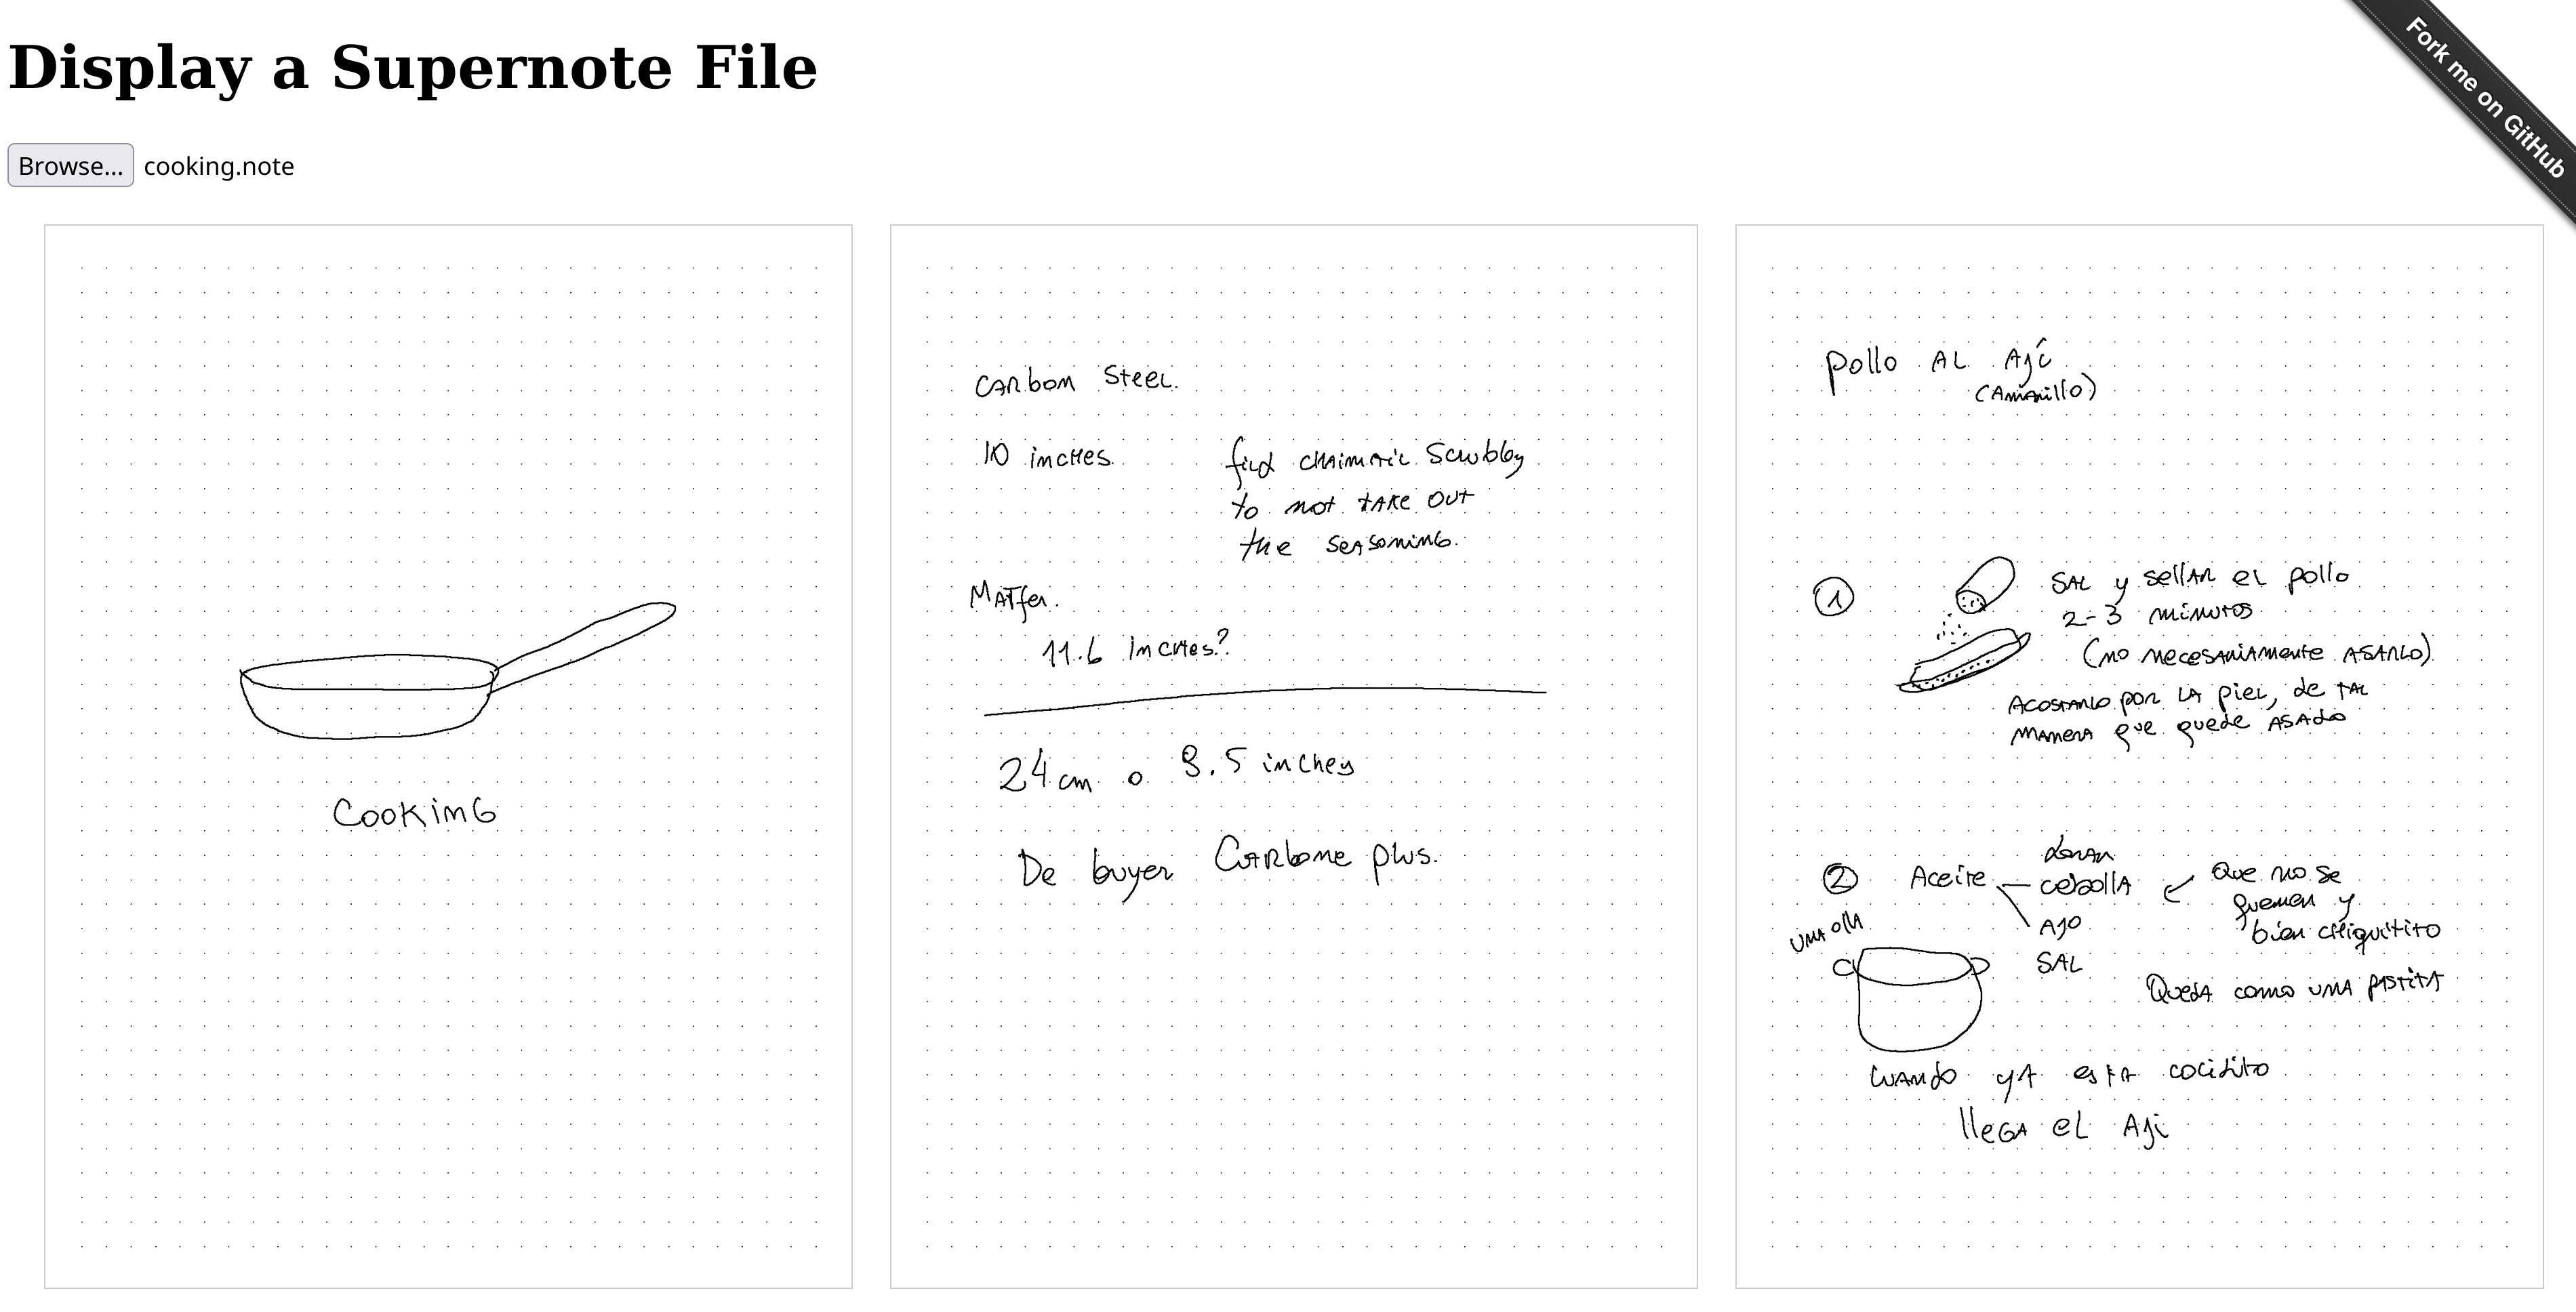 Display a Supernote File
Fork me on GitHub
Browse... cooking.note
Cooking
Carbon Steel.
10 inches.
find chainmail Scrubby
to not take out
the seasoning.
Matfer.
11.6 inches?
24 cm o 9.5 inches
De buyer Carbone plus.
pollo AL Ají
(Amarillo)
1
SAL y sellar el pollo
2-3 minutos
(no necesariamente ASARLO)
Acostarlo por LA piel, de tal
manera que quede ASAdo
2
Aceite
dorar
cebolla
Ajo
SAL
Que no se
quemen y
bien chiquitito
una olla
Queda como una pastita
Cuando ya esta cocidito
llega el Aji